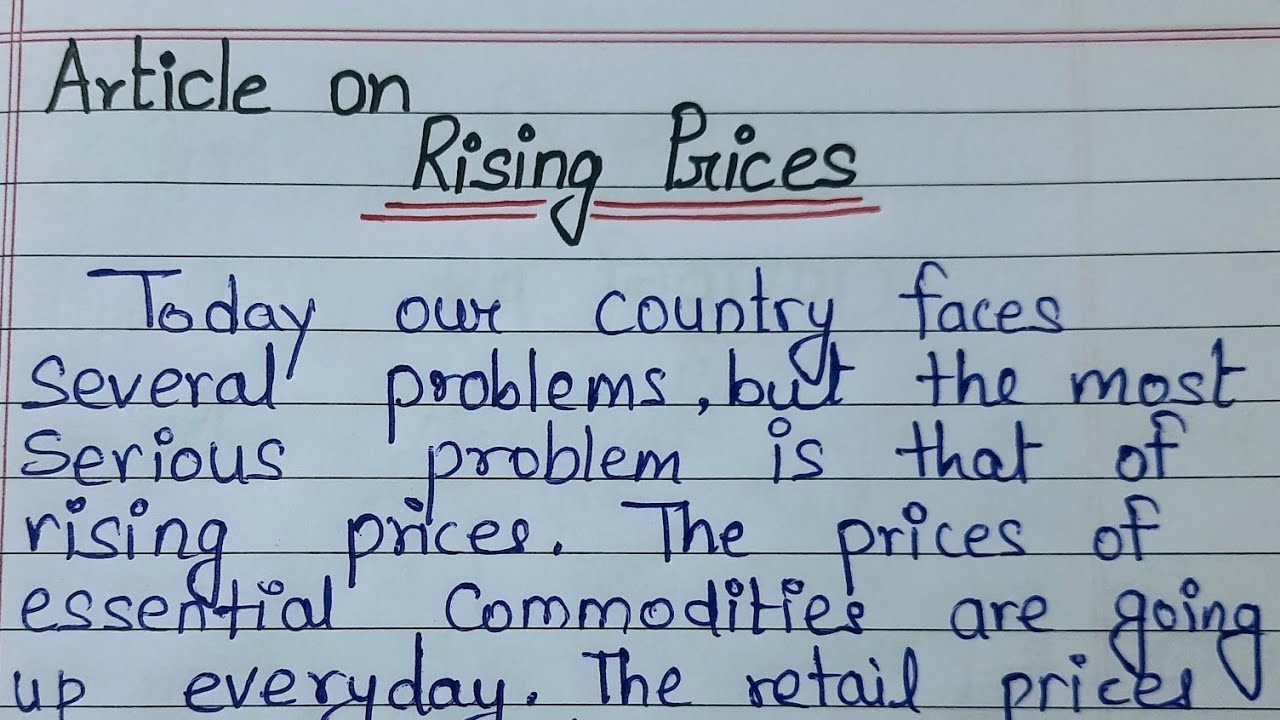 Article on
Rising Prices
Today our country faces
several problems, but the most
serious problem is that of
rising prices. The prices of
essential commodities are going
up everyday. The retail prices